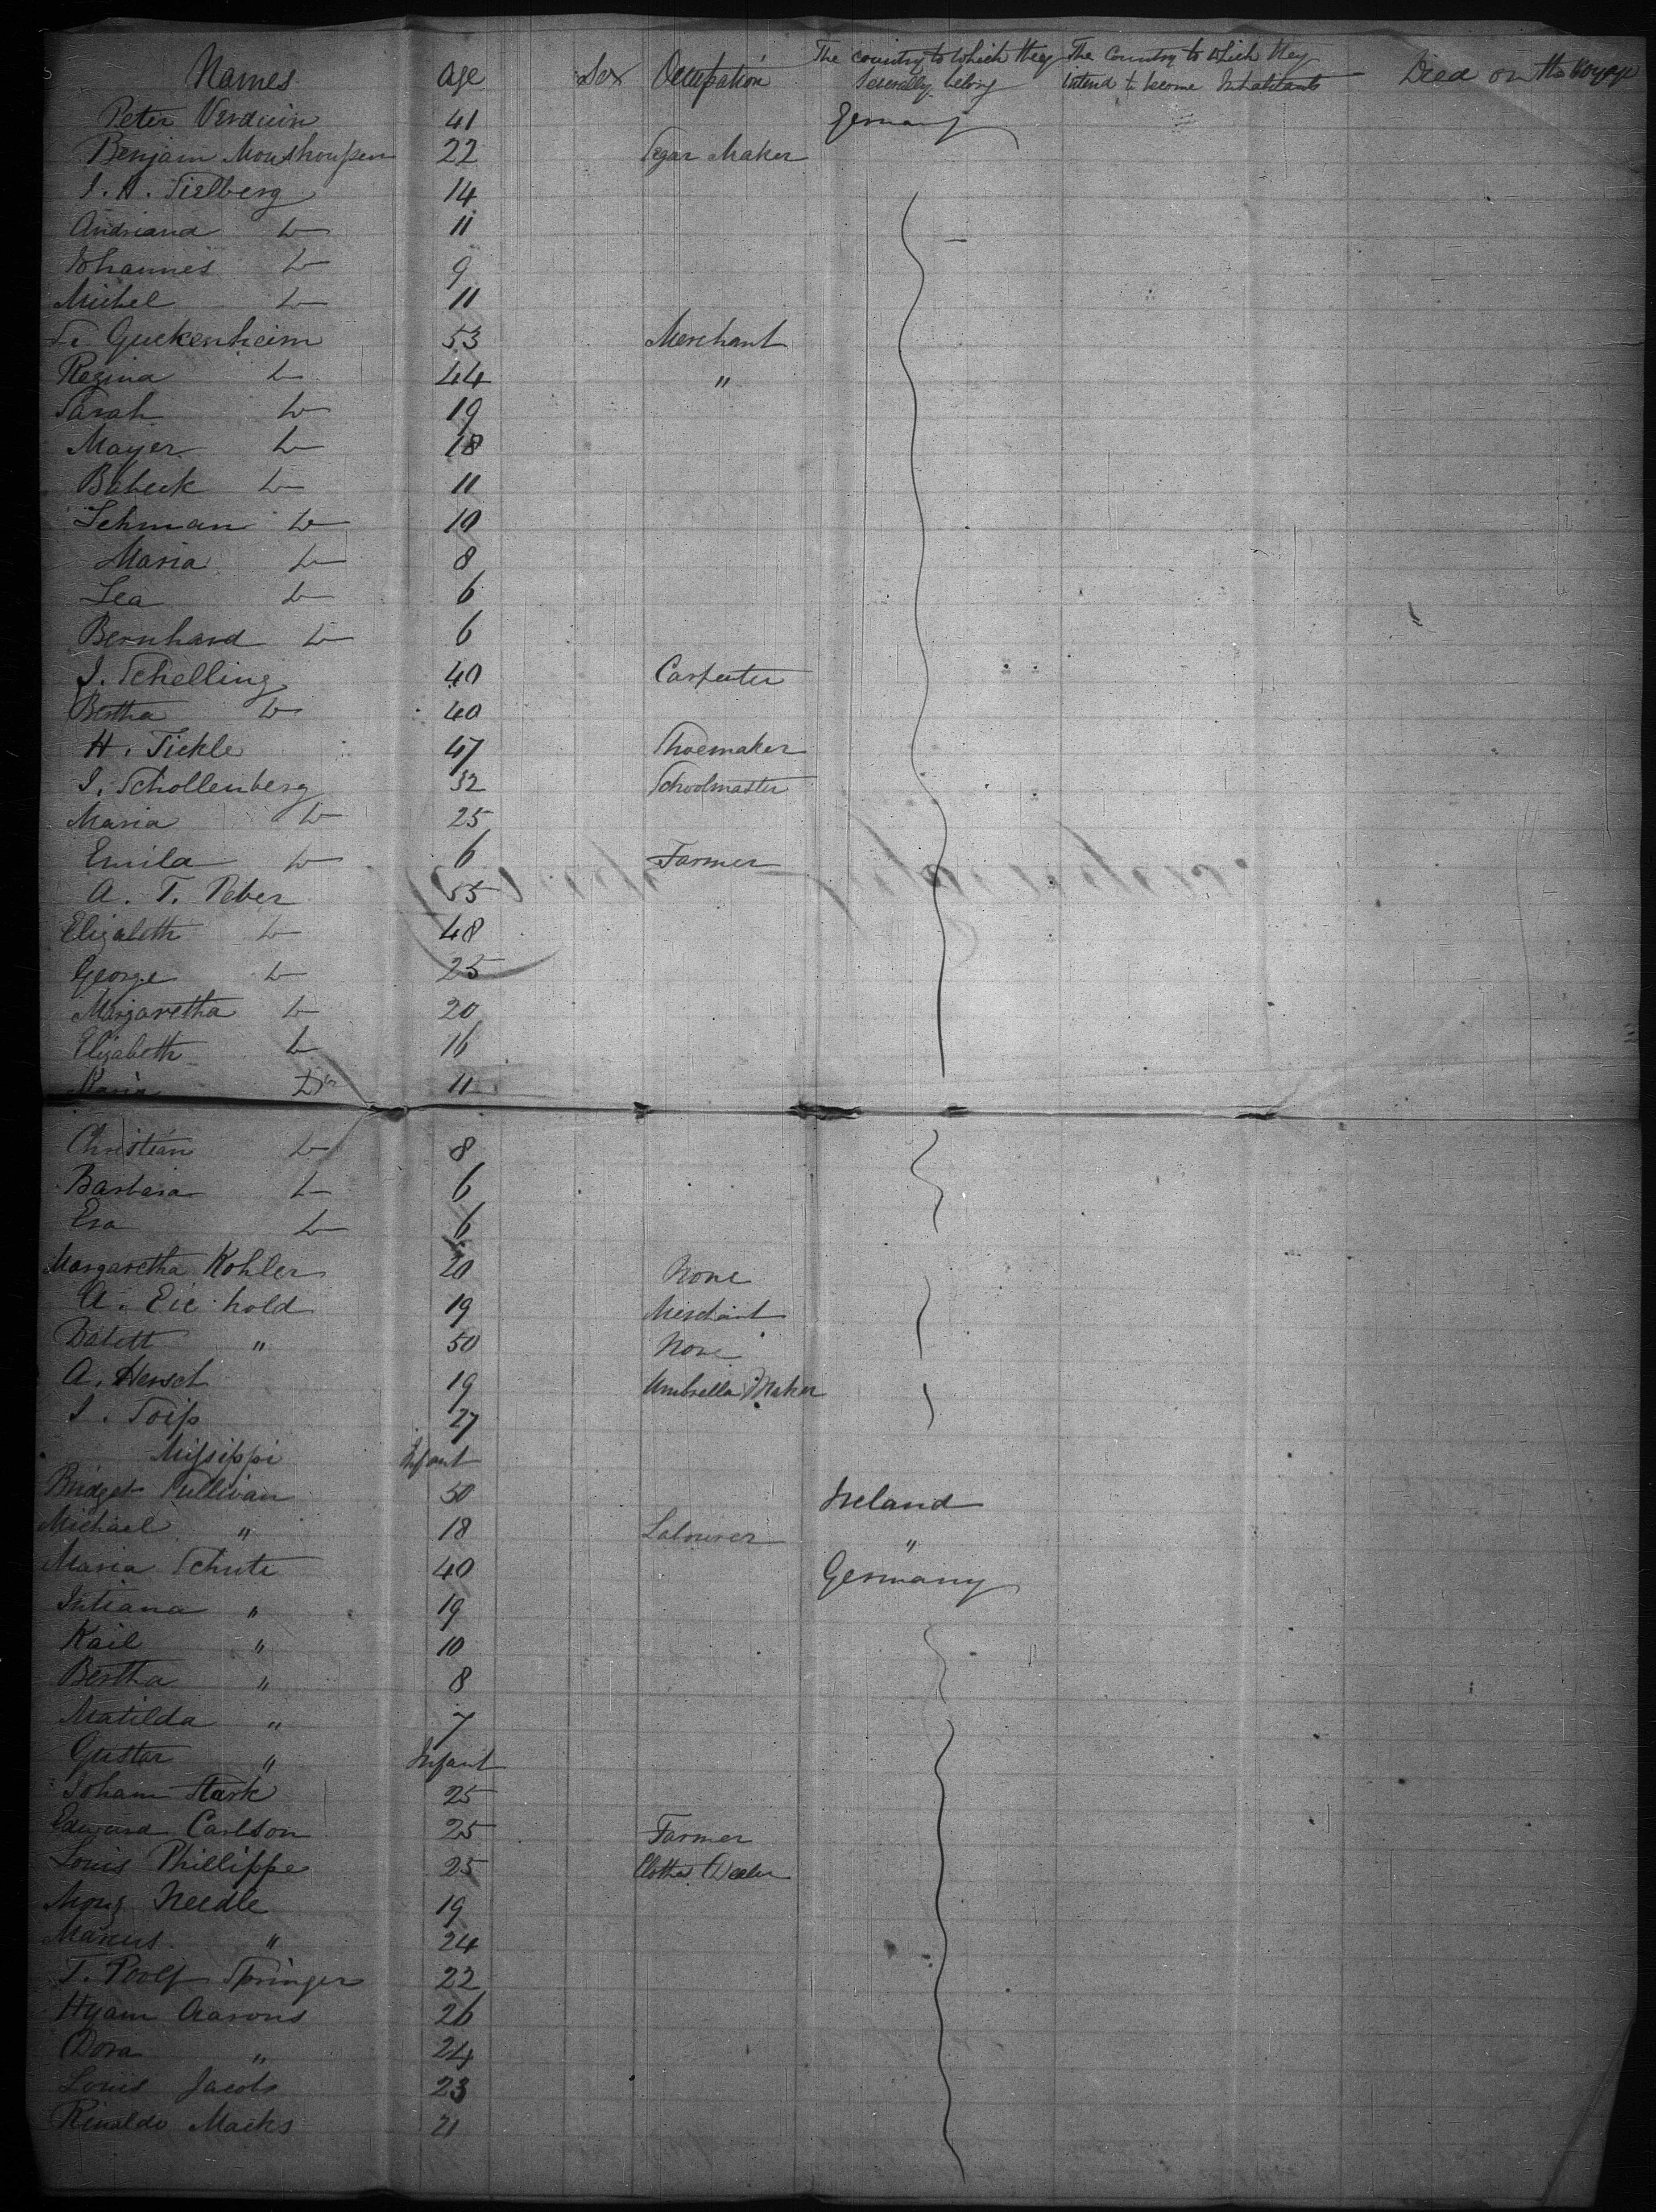 Names age Sex Occupation The country to which they severally belong The Country to which they intend to become Inhabitants Died on the Voyage
Peter Verduin 41 Germany
Benjam 22 Segar Maker
J. A. Sielberg 14
Andriana Do 11
Johannes Do 9
Michel Do 11
Guckenheim 53 Merchant
Regina Do 44 "
Sarah Do 19
Mayer Do 18
Babeck Do 11
Lehman Do 10
Maria Do 8
Lea Do 6
Bernhard Do 6
J. Schelling 40 Carpenter
Bertha Do 40
H. Sickle 47 Shoemaker
J. Schollenberg 32 Schoolmaster
Maria Do 25
Emila Do 6 Farmer
A. T. Peber 55
Elizabeth Do 48
George Do 25
Margaretha Do 20
Elizabeth Do 16
Maria Do 11
Christian Do 8
Barbara Do 6
Eva Do 6
Margaretha Kohler 20 None
A. Eichold 19 Merchant
Babett " 50 None
A. Hersch 19 Umbrella Maker
27
Missippi Infant
Bridget Sullivan 50 Ireland
Michael " 18 Labourer "
Maria Schute 40 Germany
" 19
Kail " 10
Bertha " 8
Matilda " 7
Gustav " Infant
Joham Stark 25
Edward Carlson 25 Farmer
Louis Phillippe 25 Clothes Dealer
Needle 19
Marcus " 24
T. Springer 22
Hyam Aarons 26
Dora " 24
Louis Jacobs 23
Rinaldo Macks 21